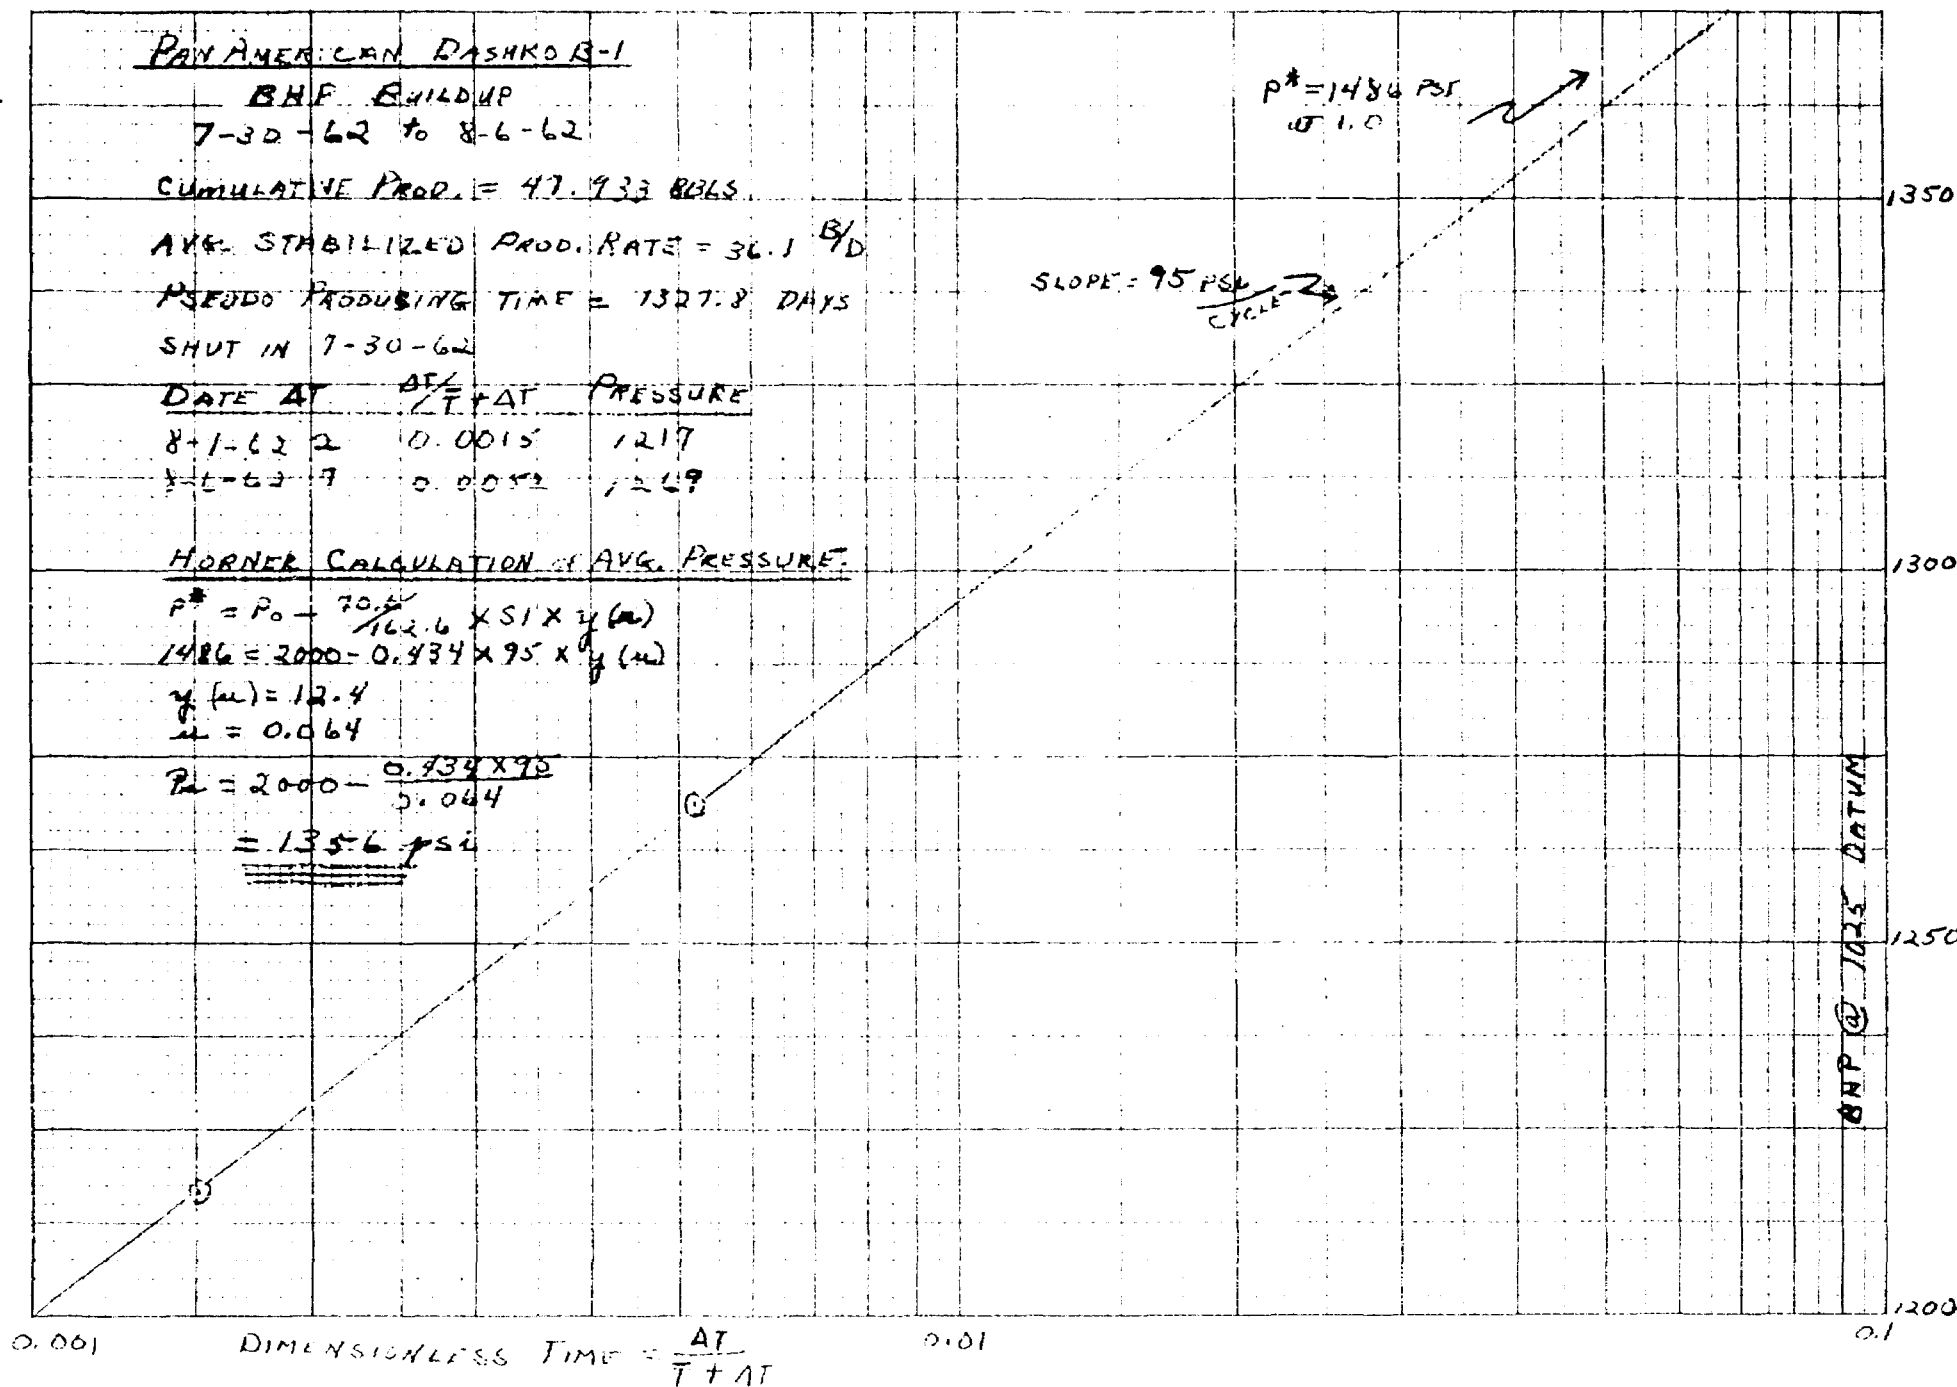 PAN AMERICAN DASHKO B-1
BHP BUILDUP
7-30-62 to 8-6-62
CUMULATIVE PROD. = 47,933 BBLS.
AVG. STABILIZED PROD. RATE = 36.1 B/D
PSEUDO PRODUCING TIME = 1327.8 DAYS
SHUT IN 7-30-62
DATE ΔT ΔT/T+ΔT PRESSURE
8-1-62 2 0.0015 1217
8-6-62 7 0.0052 1269
HORNER CALCULATION of AVG. PRESSURE.
P* = Po - 70.6/162.6 X Sl X y(u)
1486 = 2000 - 0.434 X 95 X y(u)
y(u) = 12.4
u = 0.064
= 2000 - 0.434 X 95 / 0.064
= 1356 psi
P* = 1486 PSI
at 1.0
SLOPE = 95 PSI/CYCLE
1350
1300
1250
1200
BHP @ 1025 DATUM
0.001
0.01
0.1
DIMENSIONLESS TIME = ΔT / T + ΔT